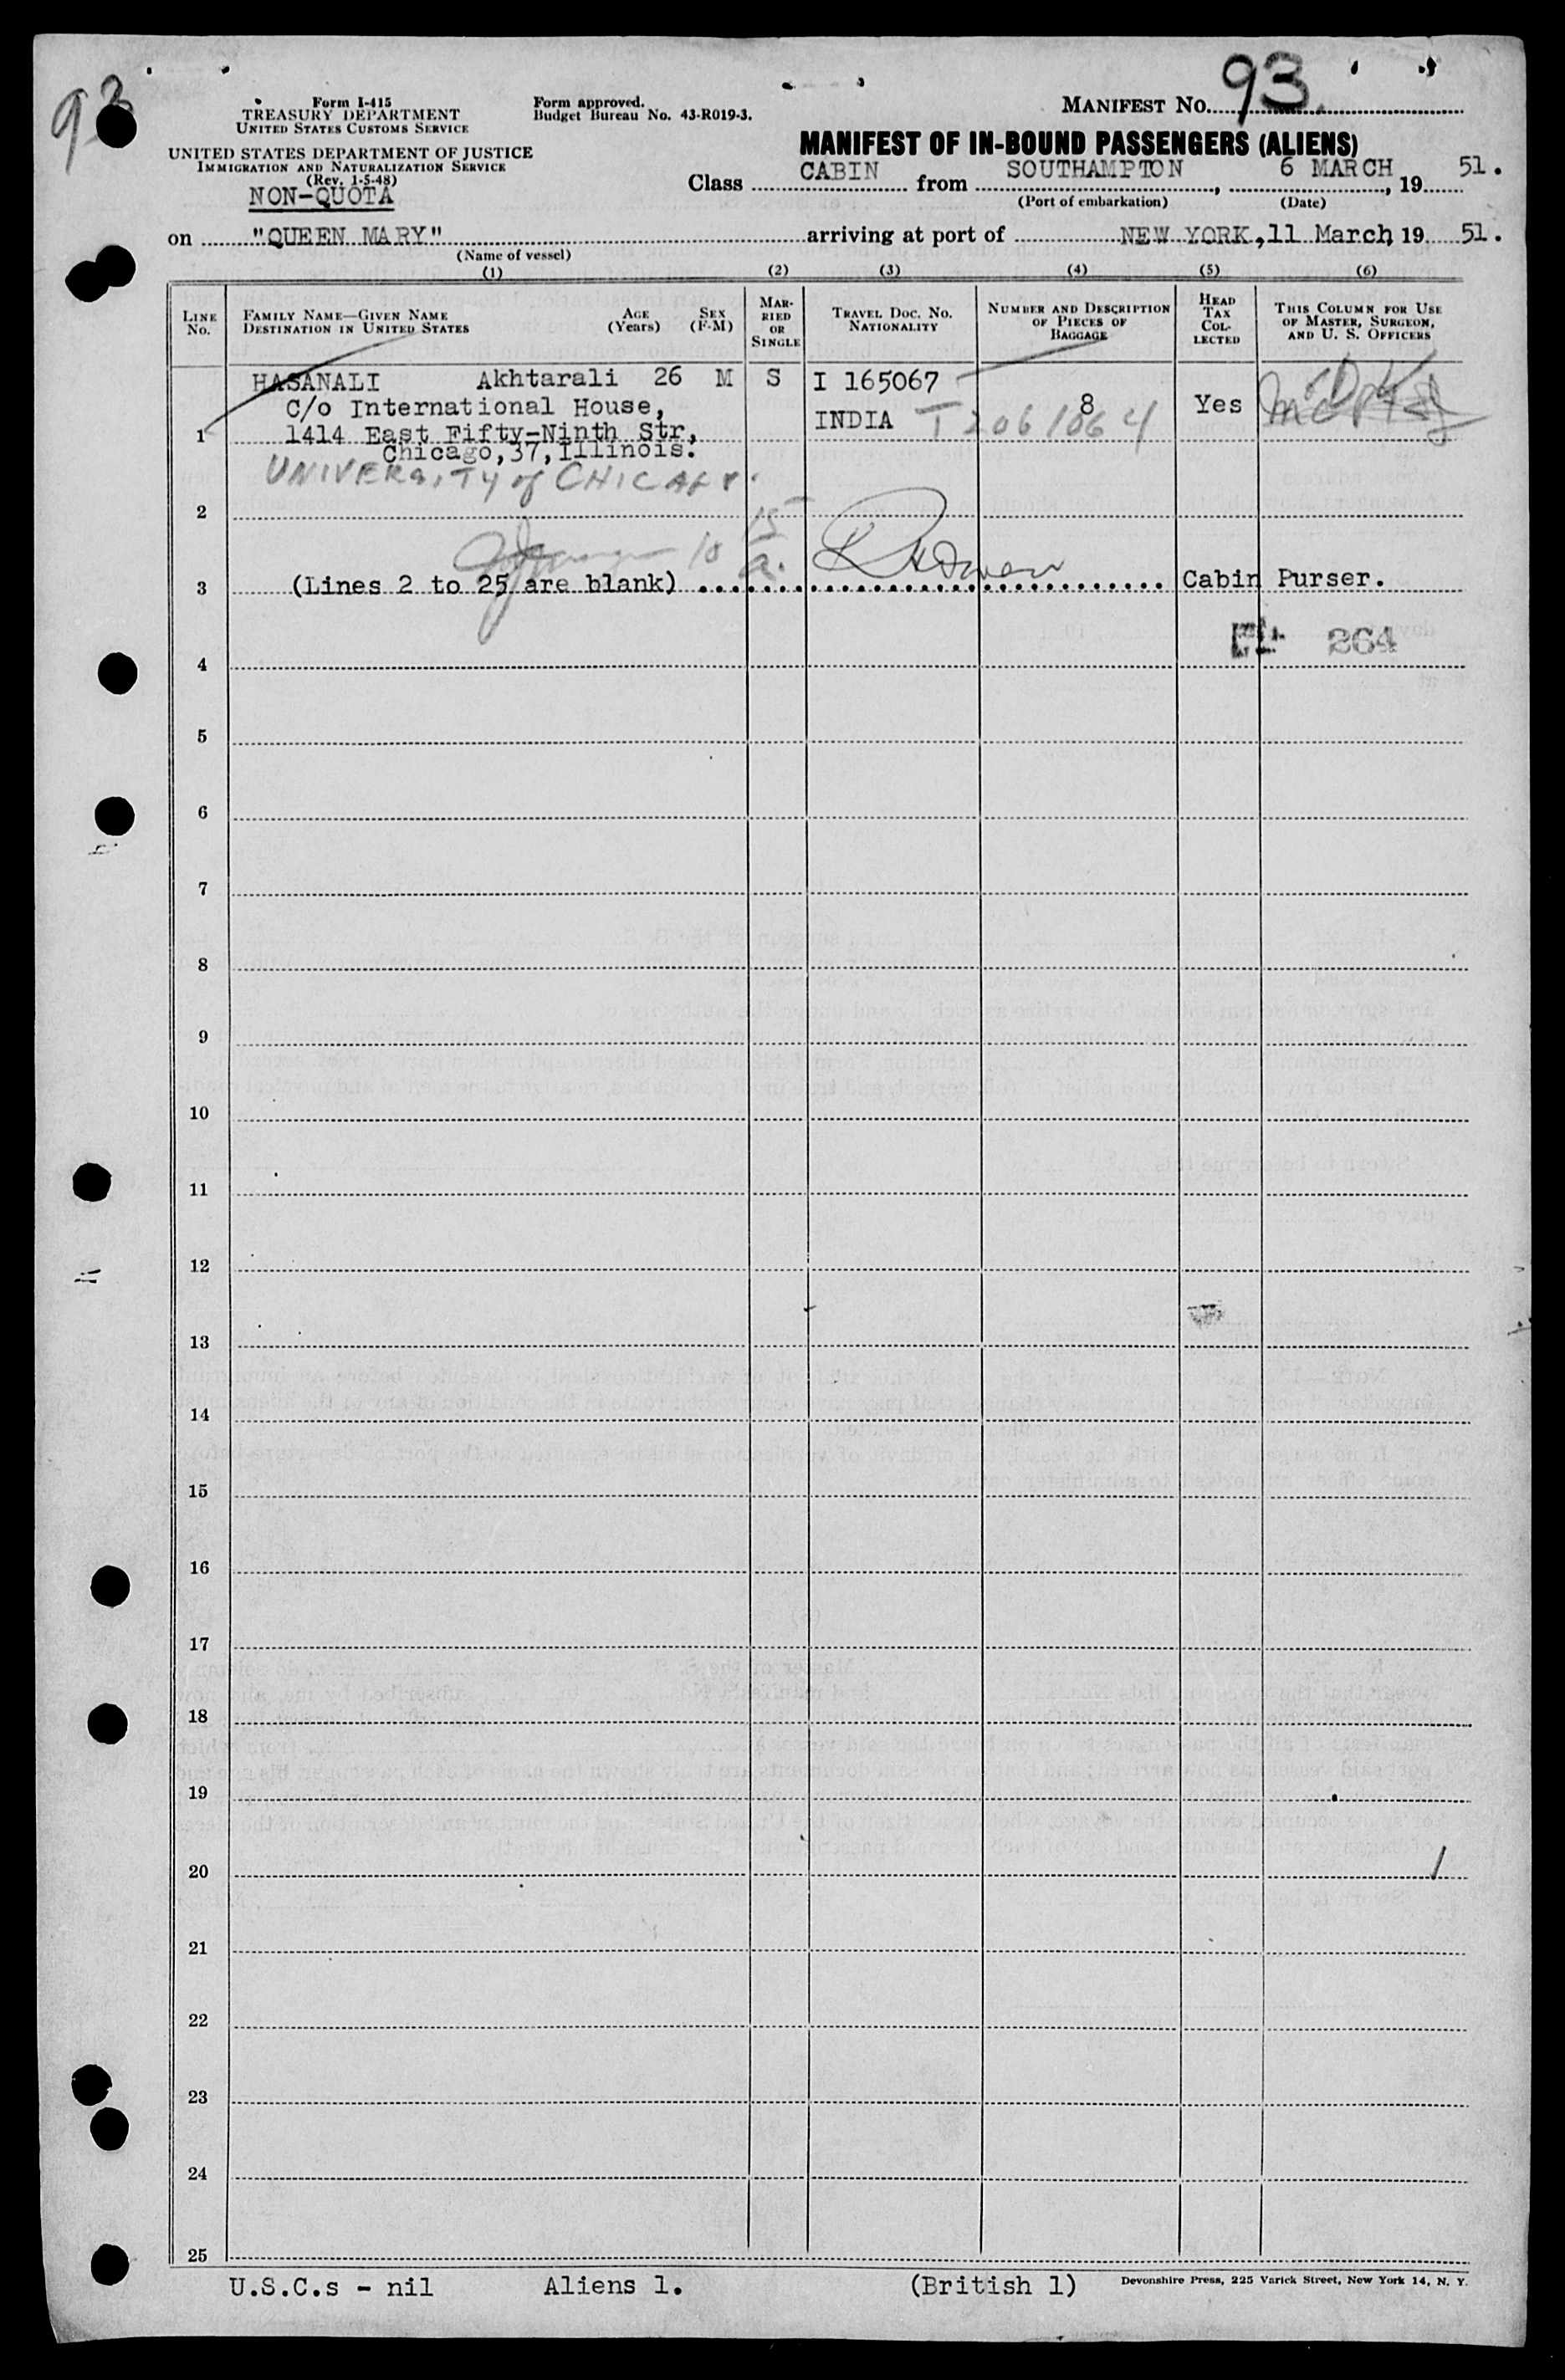 93
93
Form I-415
TREASURY DEPARTMENT
UNITED STATES CUSTOMS SERVICE
Form approved.
Budget Bureau No. 43-R019-3.
MANIFEST No.
UNITED STATES DEPARTMENT OF JUSTICE
IMMIGRATION AND NATURALIZATION SERVICE
(Rev. 1-5-48)
NON-QUOTA
MANIFEST OF IN-BOUND PASSENGERS (ALIENS)
Class CABIN from SOUTHAMPTON, 6 MARCH, 19 51.
(Port of embarkation) (Date)
on "QUEEN MARY" arriving at port of NEW YORK, 11 March, 19 51.
(Name of vessel)
(1) (2) (3) (4) (5) (6)
LINE No.
FAMILY NAME—GIVEN NAME
DESTINATION IN UNITED STATES
AGE (Years)
SEX (F-M)
MARRIED OR SINGLE
TRAVEL DOC. NO. NATIONALITY
NUMBER AND DESCRIPTION OF PIECES OF BAGGAGE
HEAD TAX COLLECTED
THIS COLUMN FOR USE OF MASTER, SURGEON, AND U. S. OFFICERS
HASANALI Akhtarali 26 M S I 165067
C/o International House, 8 Yes
INDIA T2061064
1 1414 East Fifty-Ninth Str,
Chicago,37,Illinois.
UNIVERSITY of CHICAGO.
2
10 15 a.
3 (Lines 2 to 25 are blank) Cabin Purser.
264
4
5
6
7
8
9
10
11
12
13
14
15
16
17
18
19
20
21
22
23
24
25
U.S.C.s - nil Aliens 1. (British 1)
Devonshire Press, 225 Varick Street, New York 14, N. Y.